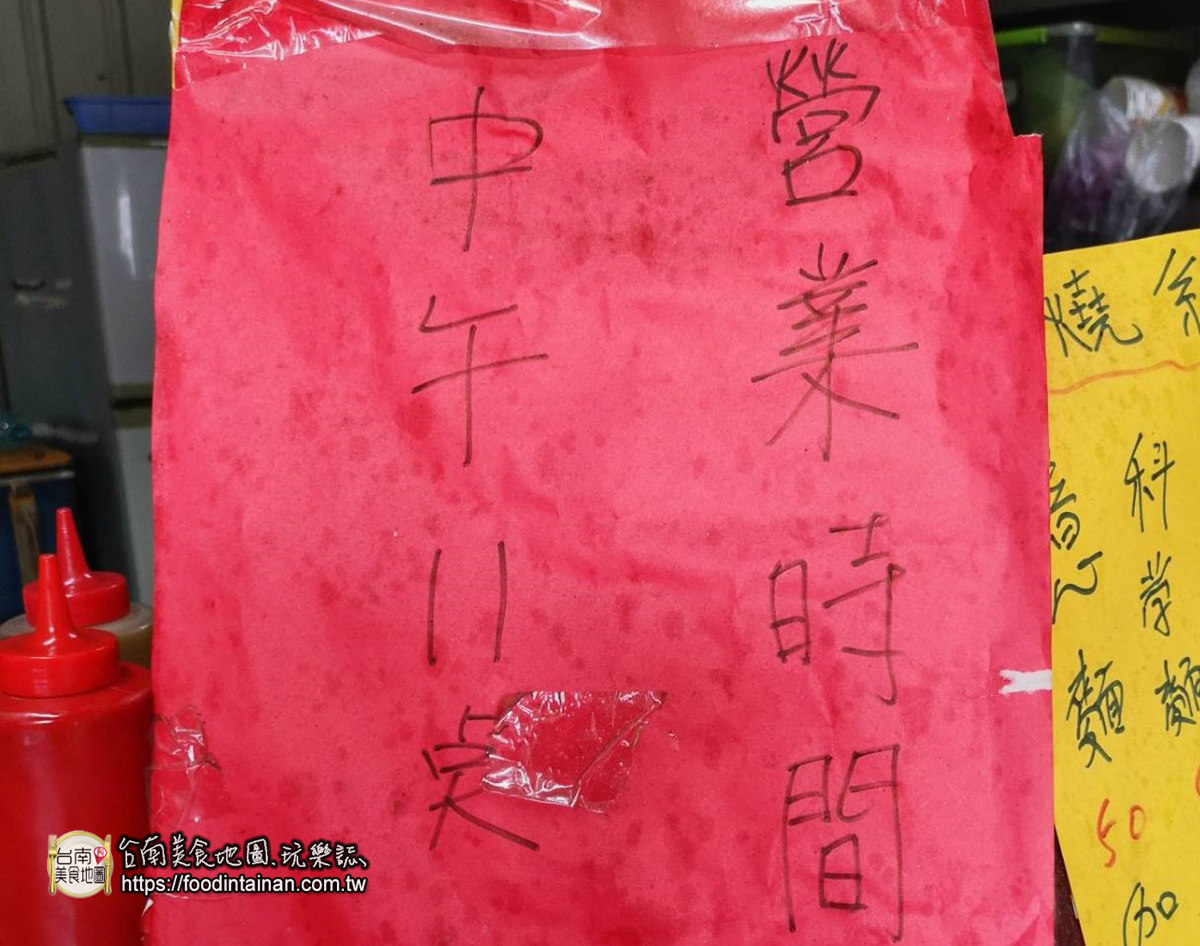 營業時間
中午11点
燒
科学麵
意麵
50
加
台南美食地圖.玩樂誌
https://foodintainan.com.tw
台南
美食地圖